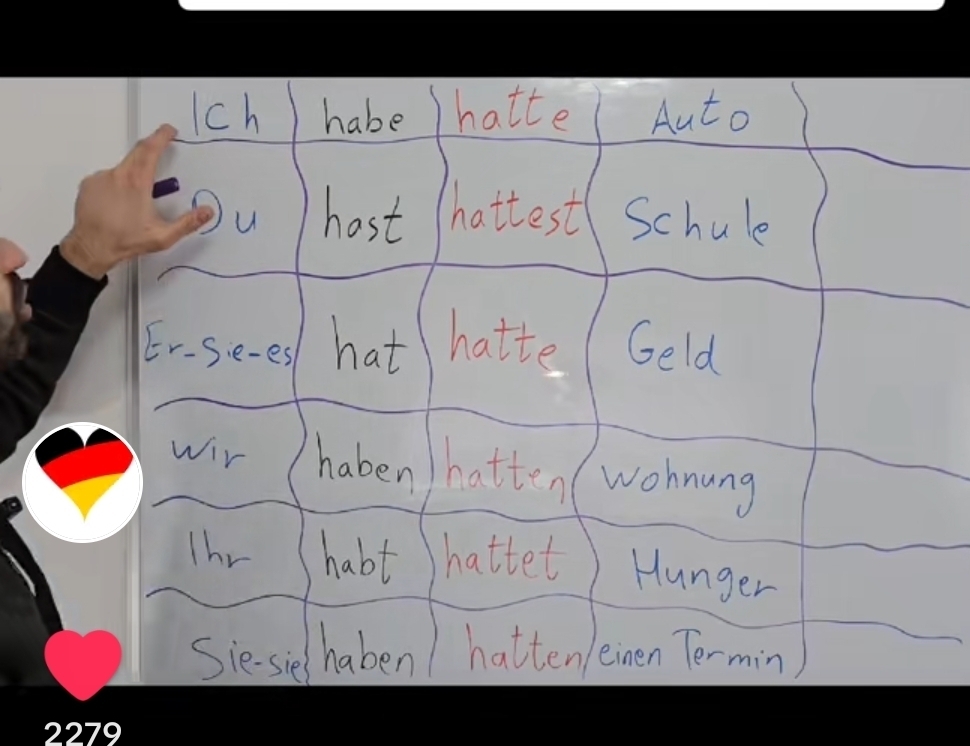 Ich habe hatte Auto
Du hast hattest Schule
Er-Sie-es hat hatte Geld
Wir haben hatten Wohnung
Ihr habt hattet Hunger
Sie-sie haben hatten einen Termin
2279